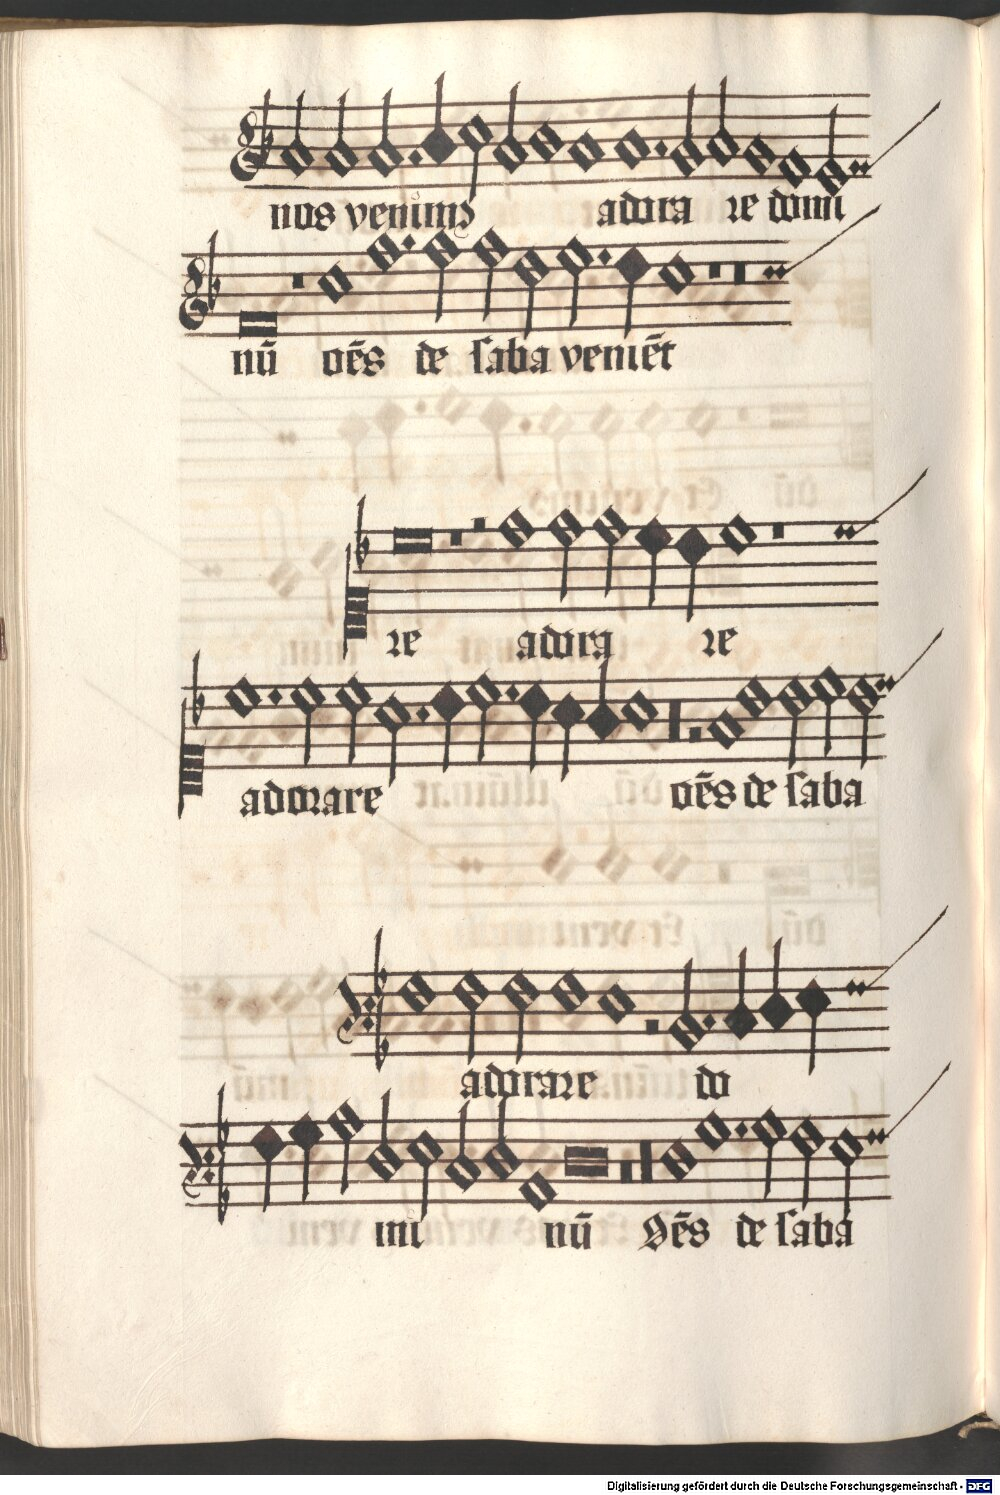 nos venim⁹ adora re domi
nū oēs de saba veniēt
re adora re
adorare oēs de saba
adorare do
mi nū Oēs de saba
Digitalisierung gefördert durch die Deutsche Forschungsgemeinschaft - DFG